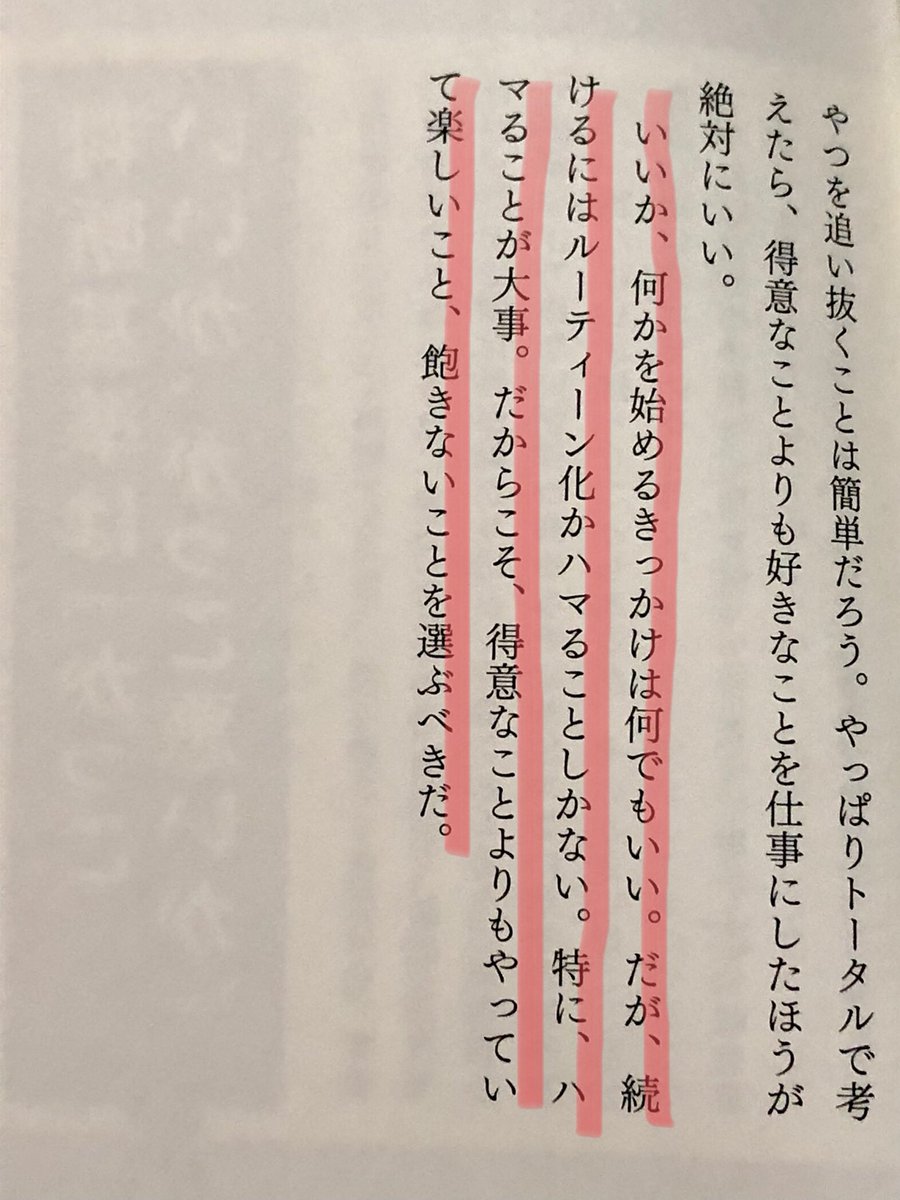 やつを追い抜くことは簡単だろう。やっぱりトータルで考
えたら、得意なことよりも好きなことを仕事にしたほうが
絶対にいい。
いいか、何かを始めるきっかけは何でもいい。だが、続
けるにはルーティーン化かハマることしかない。特に、ハ
マることが大事。だからこそ、得意なことよりもやってい
て楽しいこと、飽きないことを選ぶべきだ。